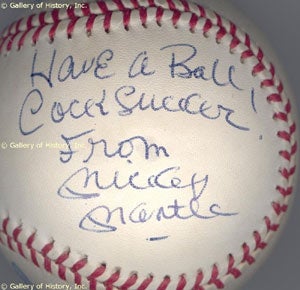 © Gallery of History, Inc.
© Gallery of History, Inc.
Have a Ball!
Cock Sucker!
From
Mickey
Mantle
© Gallery of History, Inc.
© Gallery of History, Inc.